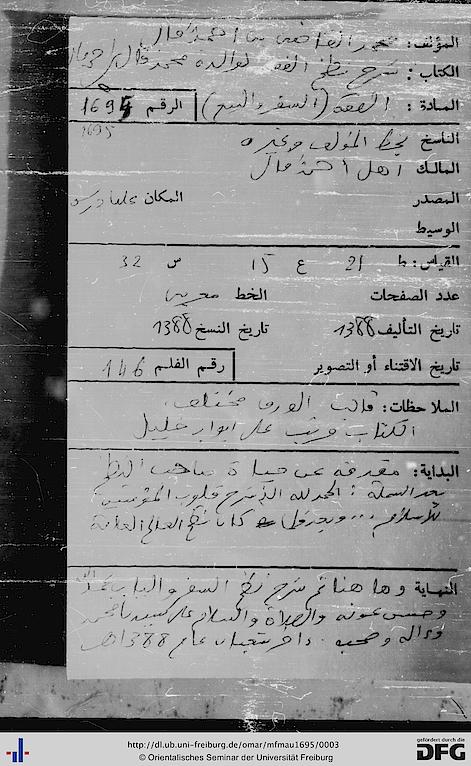 المؤلف: محمد
الكتاب: شرح نظم الفقه لوالده محمد
المادة: الفقه (السفر والبيع) الرقم 1695
1695
الناسخ بخط المؤلف وغيره
المالك أهل احمد فال
المصدر المكان
الوسيط
القياس: ط 21 ع 15 س 32
عدد الصفحات الخط مغربي
تاريخ التأليف 1388 تاريخ النسخ 1388
تاريخ الاقتناء أو التصوير رقم الفلم 146
الملاحظات: قالب الورق مختلف،
الكتاب مرتب على أبواب خليل
البداية: مقدمة عن حياة صاحب النظم
بعد البسملة: الحمد لله الذي شرح قلوب المؤمنين
للإسلام ... وبعد
النهاية وها هنا تم شرح نظم السفر والباب
وحسن عونه والصلاة والسلام على سيدنا محمد
وءاله وصحبه. شعبان عام 1388هـ
http://dl.ub.uni-freiburg.de/omar/mfmau1695/0003
© Orientalisches Seminar der Universität Freiburg
gefördert durch die
DFG